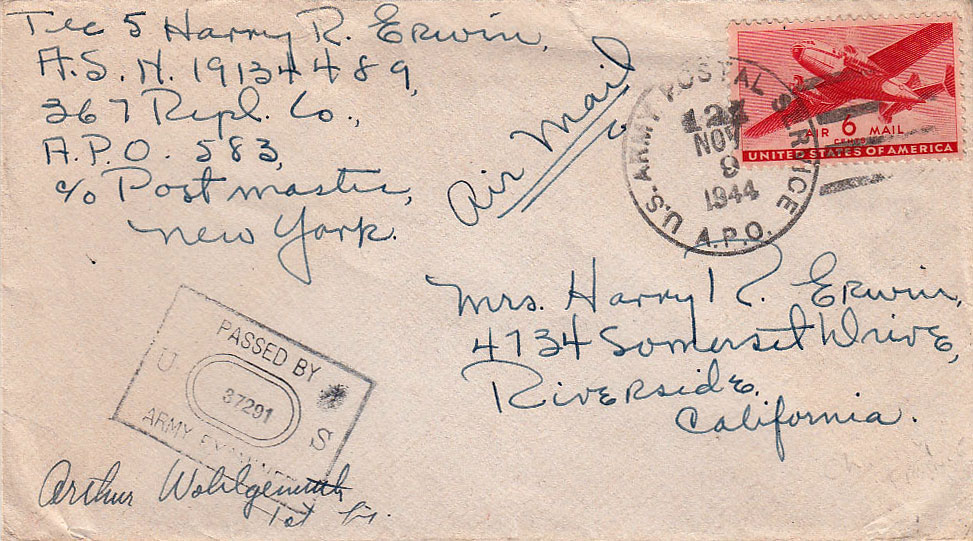 Tec 5 Harry R. Erwin,
A.S.N. 19134489,
367 Repl. Co.,
A.P.O. 583,
c/o Postmaster,
New York.
Air Mail
U.S. ARMY POSTAL SERVICE
NOV
9
1944
A.P.O.
AIR 6 MAIL
CENTS
UNITED STATES OF AMERICA
Mrs. Harry R. Erwin,
4734 Somerset Drive,
Riverside,
California.
PASSED BY
U S
37291
ARMY
Arthur Wohlgemuth
1st Lt.